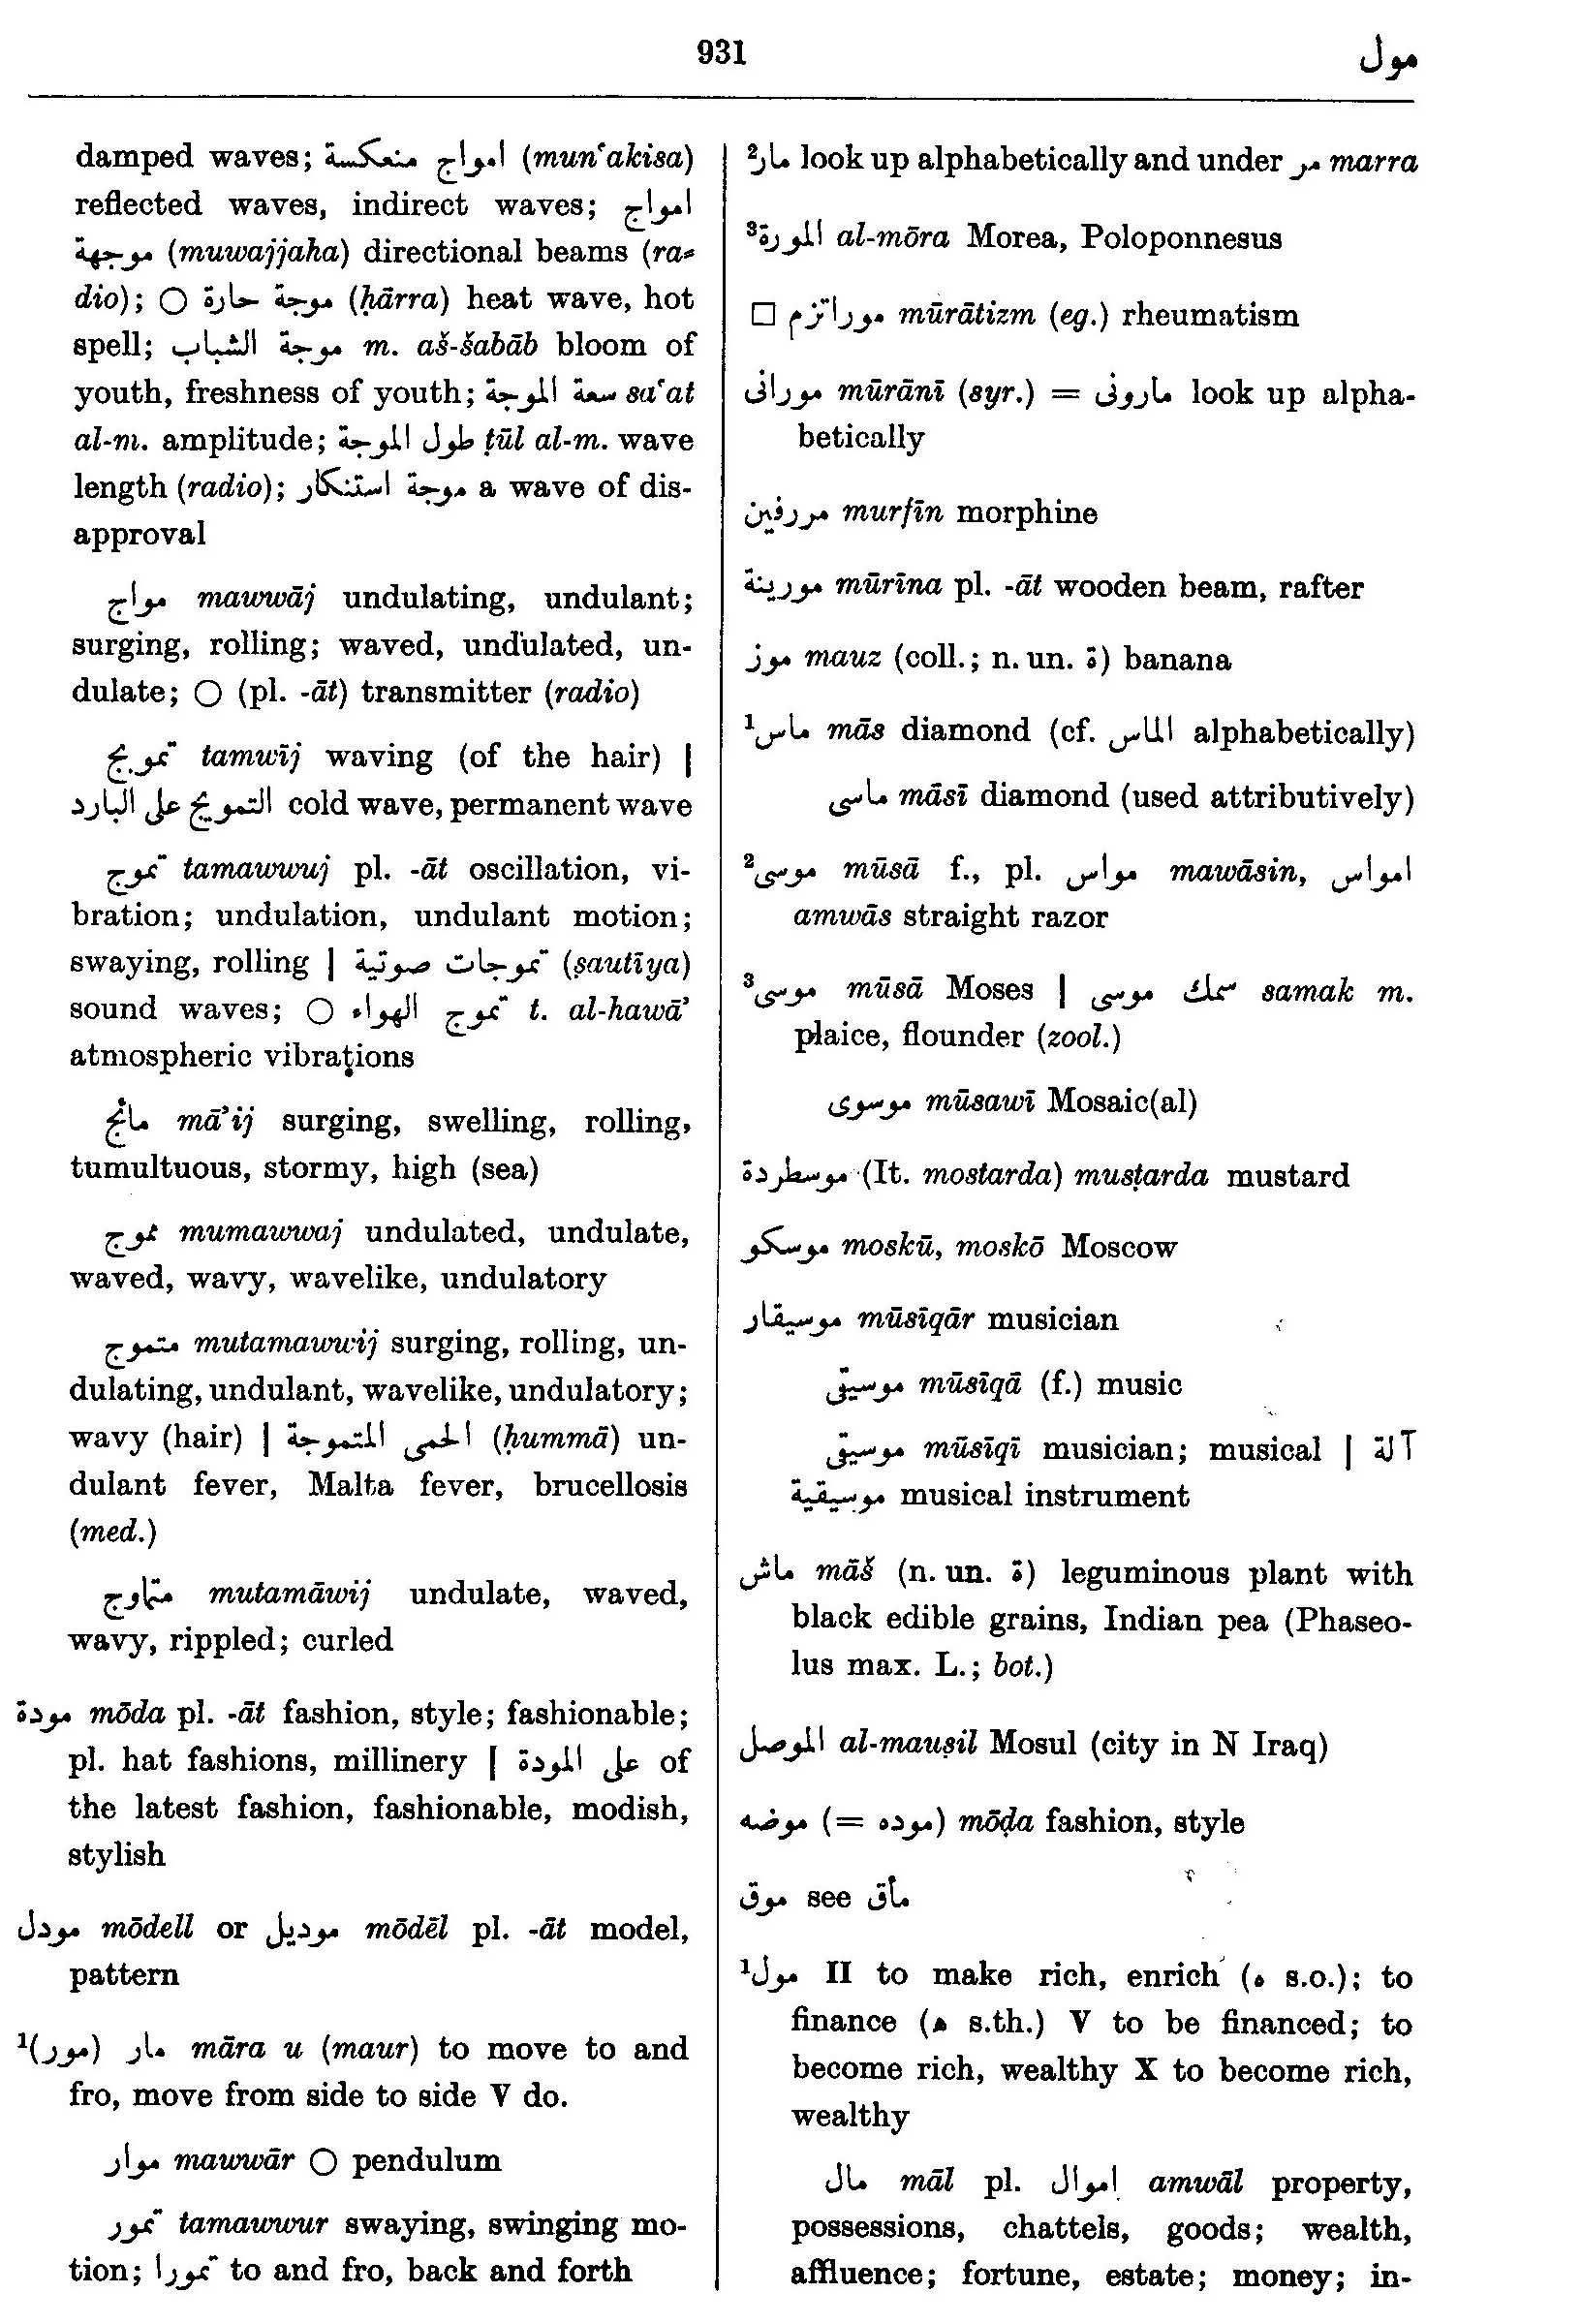 931
مول
damped waves; امواج منعكسة (mun‘akisa)
reflected waves, indirect waves; امواج
موجهة (muwajjaha) directional beams (ra-
dio); ○ موجة حارة (ḥārra) heat wave, hot
spell; موجة الشباب m. aš-šabāb bloom of
youth, freshness of youth; سعة الموجة sa‘at
al-m. amplitude; طول الموجة ṭūl al-m. wave
length (radio); موجة استنكار a wave of dis-
approval
مواج mawwāj undulating, undulant;
surging, rolling; waved, undulated, un-
dulate; ○ (pl. -āt) transmitter (radio)
تمويج tamwīj waving (of the hair) |
التمويج على البارد cold wave, permanent wave
تموج tamawwuj pl. -āt oscillation, vi-
bration; undulation, undulant motion;
swaying, rolling | تموجات صوتية (ṣautīya)
sound waves; ○ تموج الهواء t. al-hawā’
atmospheric vibrations
مائج mā’ij surging, swelling, rolling,
tumultuous, stormy, high (sea)
مموج mumawwaj undulated, undulate,
waved, wavy, wavelike, undulatory
متموج mutamawwij surging, rolling, un-
dulating, undulant, wavelike, undulatory;
wavy (hair) | الحمى المتموجة (ḥummā) un-
dulant fever, Malta fever, brucellosis
(med.)
متماوج mutamāwij undulate, waved,
wavy, rippled; curled
مودة mōda pl. -āt fashion, style; fashionable;
pl. hat fashions, millinery | على المودة of
the latest fashion, fashionable, modish,
stylish
مودل mōdell or موديل mōdēl pl. -āt model,
pattern
¹(مور) مار māra u (maur) to move to and
fro, move from side to side V do.
موار mawwār ○ pendulum
تمور tamawwur swaying, swinging mo-
tion; تمورا to and fro, back and forth
²مار look up alphabetically and under مر marra
³المورة al-mōra Morea, Poloponnesus
□ موراتزم mūrātizm (eg.) rheumatism
مورانى mūrānī (syr.) = مارونى look up alpha-
betically
مررفين murfīn morphine
مورينة mūrīna pl. -āt wooden beam, rafter
موز mauz (coll.; n. un. ة) banana
¹ماس mās diamond (cf. الماس alphabetically)
ماسى māsī diamond (used attributively)
²موسى mūsā f., pl. مواس mawāsin, امواس
amwās straight razor
³موسى mūsā Moses | سمك موسى samak m.
plaice, flounder (zool.)
موسوى mūsawī Mosaic(al)
موسطردة (It. mostarda) musṭarda mustard
موسكو moskū, moskō Moscow
موسيقار mūsīqār musician
موسيقى mūsīqā (f.) music
موسيقى mūsīqī musician; musical | آلة
موسيقية musical instrument
ماش māš (n. un. ة) leguminous plant with
black edible grains, Indian pea (Phaseo-
lus max. L.; bot.)
الموصل al-mauṣil Mosul (city in N Iraq)
موضه (= موده) mōḍa fashion, style
موق see مأق
¹مول II to make rich, enrich (ه s.o.); to
finance (ھ s.th.) V to be financed; to
become rich, wealthy X to become rich,
wealthy
مال māl pl. اموال amwāl property,
possessions, chattels, goods; wealth,
affluence; fortune, estate; money; in-